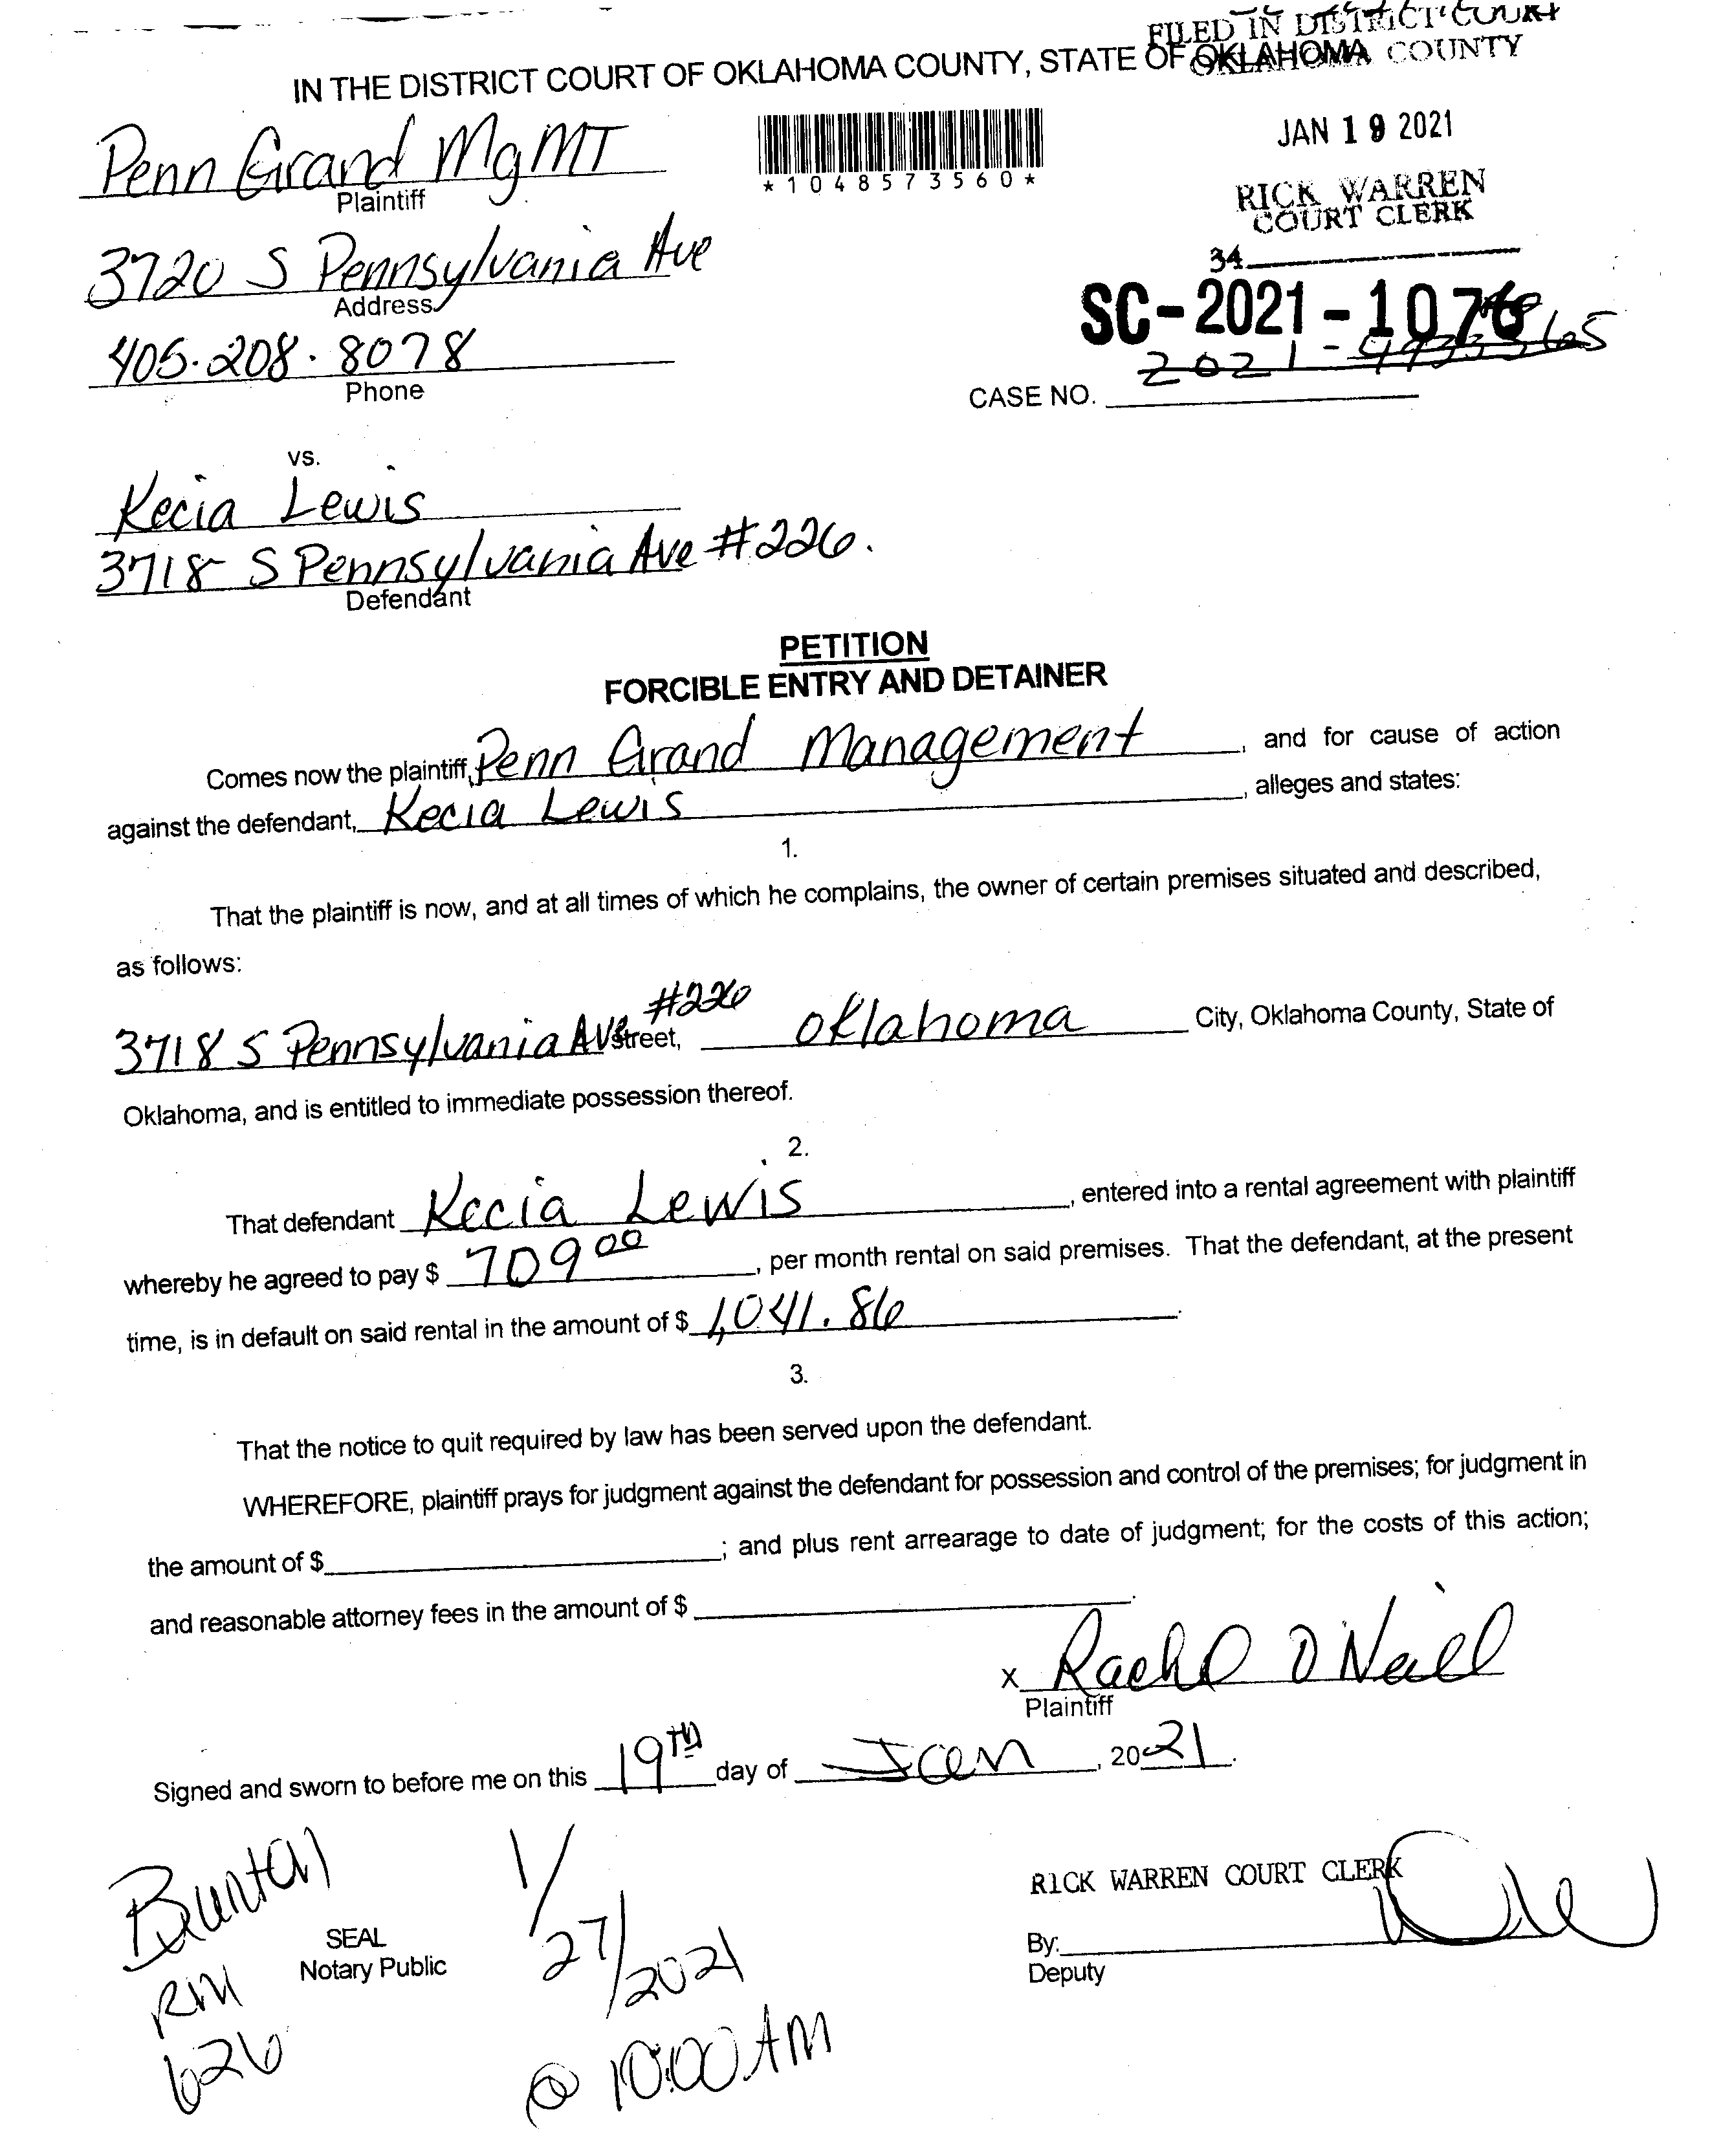 FILED IN DISTRICT COURT
OKLAHOMA COUNTY
IN THE DISTRICT COURT OF OKLAHOMA COUNTY, STATE OF OKLAHOMA
JAN 19 2021
RICK WARREN
COURT CLERK
34
Penn Grand MgMT
Plaintiff
*1048573560*
3720 S Pennsylvania Ave
Address
405.208.8078
Phone
SC-2021-1076
CASE NO.
vs.
Kecia Lewis
3718 S Pennsylvania Ave #226.
Defendant
PETITION
FORCIBLE ENTRY AND DETAINER
Comes now the plaintiff, Penn Grand Management, and for cause of action
against the defendant, Kecia Lewis, alleges and states:
1.
That the plaintiff is now, and at all times of which he complains, the owner of certain premises situated and described,
as follows:
3718 S Pennsylvania Ave #226 Street, Oklahoma City, Oklahoma County, State of
Oklahoma, and is entitled to immediate possession thereof.
2.
That defendant Kecia Lewis, entered into a rental agreement with plaintiff
whereby he agreed to pay $ 709 00, per month rental on said premises. That the defendant, at the present
time, is in default on said rental in the amount of $ 1,041.86.
3.
That the notice to quit required by law has been served upon the defendant.
WHEREFORE, plaintiff prays for judgment against the defendant for possession and control of the premises; for judgment in
the amount of $ ; and plus rent arrearage to date of judgment; for the costs of this action;
and reasonable attorney fees in the amount of $ .
x Rachel O'Neill
Plaintiff
Signed and sworn to before me on this 19TH day of Jan, 2021.
Burton
RM
626
SEAL
Notary Public
1/27/2021
@ 10:00 AM
RICK WARREN COURT CLERK
By:
Deputy